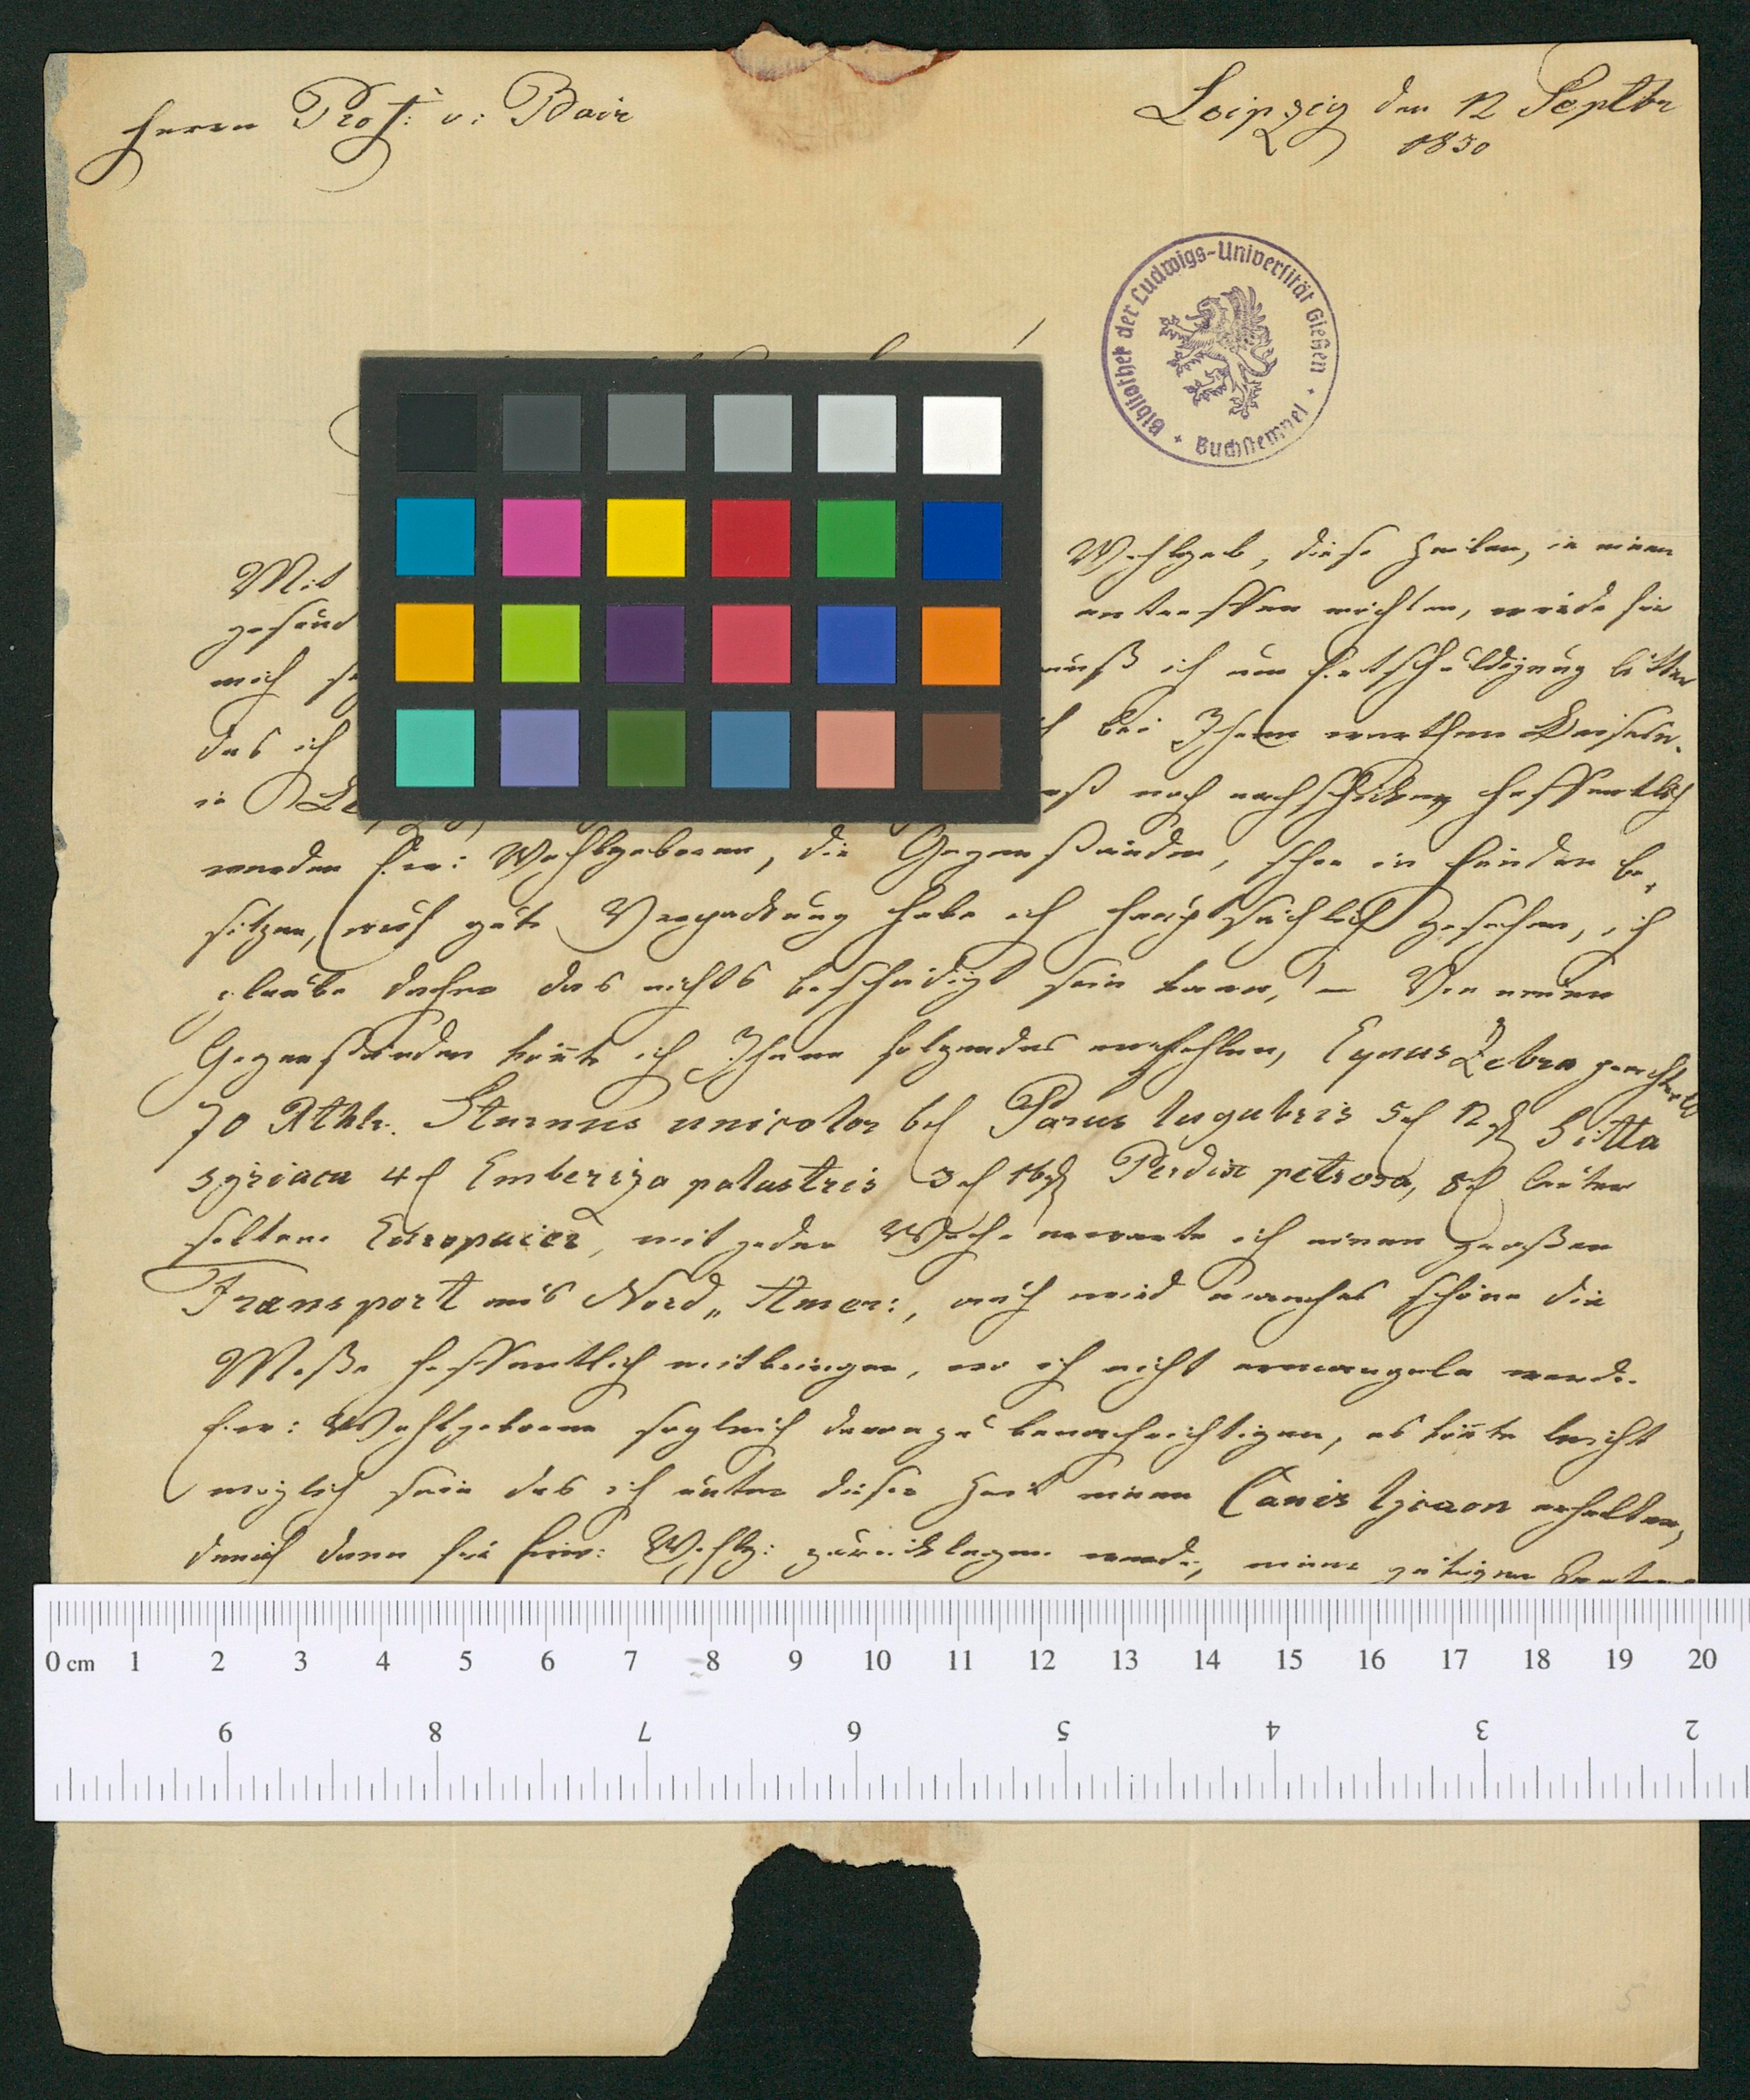 Herrn Prof: v: Bair
Leipzig den 12 Septbr
1830
Bibliothek der Ludwigs-Universität Gießen
Buchstempel
Mit Wohlgeb, diese Zeilen, in einen
gesund antreffen möchten, würde für
mich muß ich um Entschuldigung bitten
das ich bei Ihrem werthen
in noch nachschicken, hoffentlich
werden Ew: Wohlgeboren, die Gegenstände, schon in Händen be,
sitzen, auf gute Verpackung habe ich hauptsächlich gesehen, ich
glaube daher das nichts beschädigt sein kann, – Von neuen
Gegenständen könte ich Ihnen folgendes empfehlen, Eqnus Zebra
70 Rthlr. Sturnus unicolor 6 Parus lugubris 5 12 Sitta
syriaca 4 Emberiza palustris 3 16 Perdix petrosa, 8 lauter
seltene Europaier, mit jeder Woche erwarte ich einen großen
Transport aus Nord„ Amer:, auch wird manches schöne die
Meße hoffentlich mitbringen, wo ich nicht ermangeln werde
Ew: Wohlgeboren sogleich davon zu benachrichtigen, es könte leicht
möglich sein das ich unter dieser Zeit einen Canis lycaon erhalten,
denich dann für Ew: Wohlg: zurücklegen werde, meine gütigen
0 cm 1 2 3 4 5 6 7 8 9 10 11 12 13 14 15 16 17 18 19 20
9 8 7 6 5 4 3 2